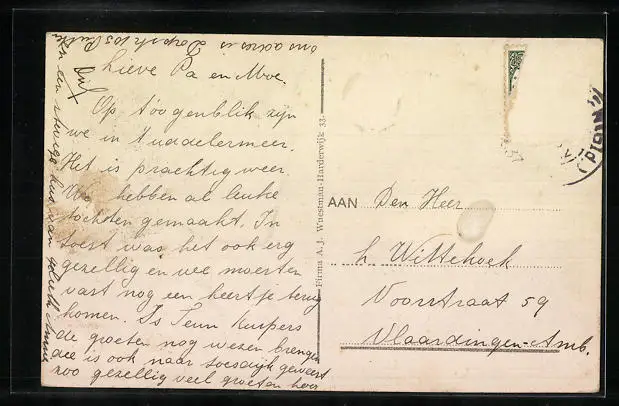 Lieve Pa en Moe.
Op 't oogenblik zijn
we in Uddelermeer.
Het is prachtig weer.
We hebben al leuke
tochten gemaakt. In
Soest was het ook erg
gezellig en we moesten
vast nog een keertje terug
komen. Is Teun Kuipers
de groeten nog wezen brengen
die is ook naar Soesdijk geweest
zoo gezellig veel groeten hoor
ons adres is Dorpstr 105
Firma A. J. Wuestman-Harderwijk 33.
AAN Den Heer
h. Wittehoek
Voorstraat 59
Vlaardingen-Amb.
37